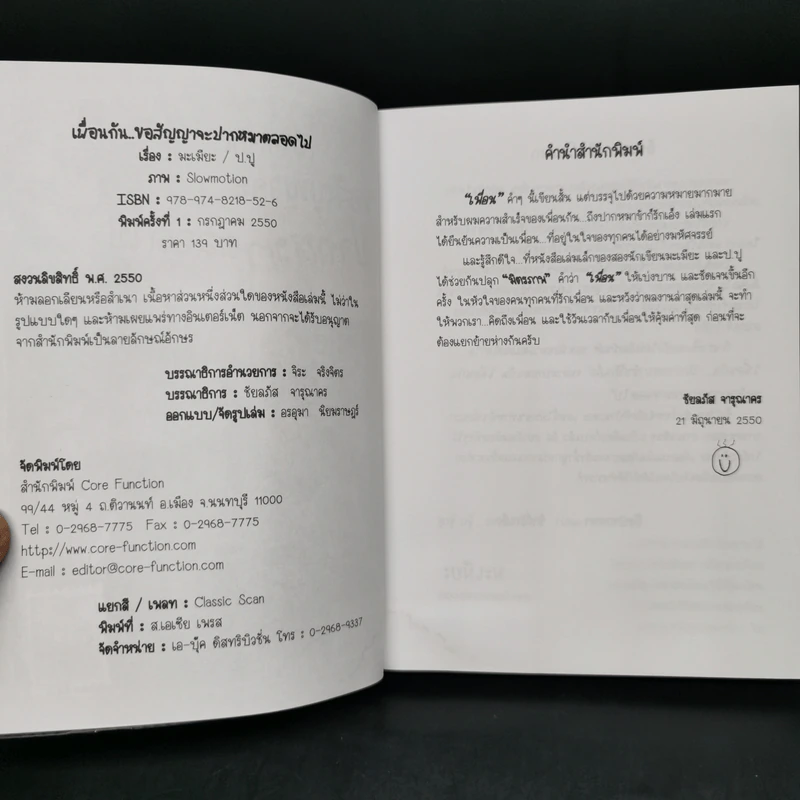 เพื่อนกัน..ขอสัญญาจะปากหมาตลอดไป
เรื่อง : มะเมียะ / ป.ปู
ภาพ : Slowmotion
ISBN : 978-974-8218-52-6
พิมพ์ครั้งที่ 1 : กรกฎาคม 2550
ราคา 139 บาท
สงวนลิขสิทธิ์ พ.ศ. 2550
ห้ามลอกเลียนหรือสำเนา เนื้อหาส่วนหนึ่งส่วนใดของหนังสือเล่มนี้ ไม่ว่าใน
รูปแบบใดๆ และห้ามเผยแพร่ทางอินเตอร์เน็ต นอกจากจะได้รับอนุญาต
จากสำนักพิมพ์เป็นลายลักษณ์อักษร
บรรณาธิการอำนวยการ : จิระ จริงจิตร
บรรณาธิการ : ชัยลภัส จารุณาคร
ออกแบบ/จัดรูปเล่ม : อรอุมา นิยมราษฎร์
จัดพิมพ์โดย
สำนักพิมพ์ Core Function
99/44 หมู่ 4 ถ.ติวานนท์ อ.เมือง จ.นนทบุรี 11000
Tel : 0-2968-7775 Fax : 0-2968-7775
http://www.core-function.com
E-mail : editor@core-function.com
แยกสี / เพลท : Classic Scan
พิมพ์ที่ : ส.เอเซีย เพรส
จัดจำหน่าย : เอ-บุ๊ค ดิสทริบิวชั่น โทร : 0-2968-9337
คำนำสำนักพิมพ์
"เพื่อน" คำๆ นี้เขียนสั้น แต่บรรจุไปด้วยความหมายมากมาย
สำหรับผมความสำเร็จของเพื่อนกัน...ถึงปากหมาข้าก็รักเอ็ง เล่มแรก
ได้ยืนยันความเป็นเพื่อน...ที่อยู่ในใจของทุกคนได้อย่างมหัศจรรย์
และรู้สึกดีใจ...ที่หนังสือเล่มเล็กของสองนักเขียนมะเมียะ และป.ปู
ได้ช่วยกันปลุก "มิตรภาพ" คำว่า "เพื่อน" ให้เบ่งบาน และชัดเจนขึ้นอีก
ครั้ง ในหัวใจของคนทุกคนที่รักเพื่อน และหวังว่าผลงานล่าสุดเล่มนี้ จะทำ
ให้พวกเรา...คิดถึงเพื่อน และใช้วันเวลากับเพื่อนให้คุ้มค่าที่สุด ก่อนที่จะ
ต้องแยกย้ายห่างกันครับ
ชัยลภัส จารุณาคร
21 มิถุนายน 2550